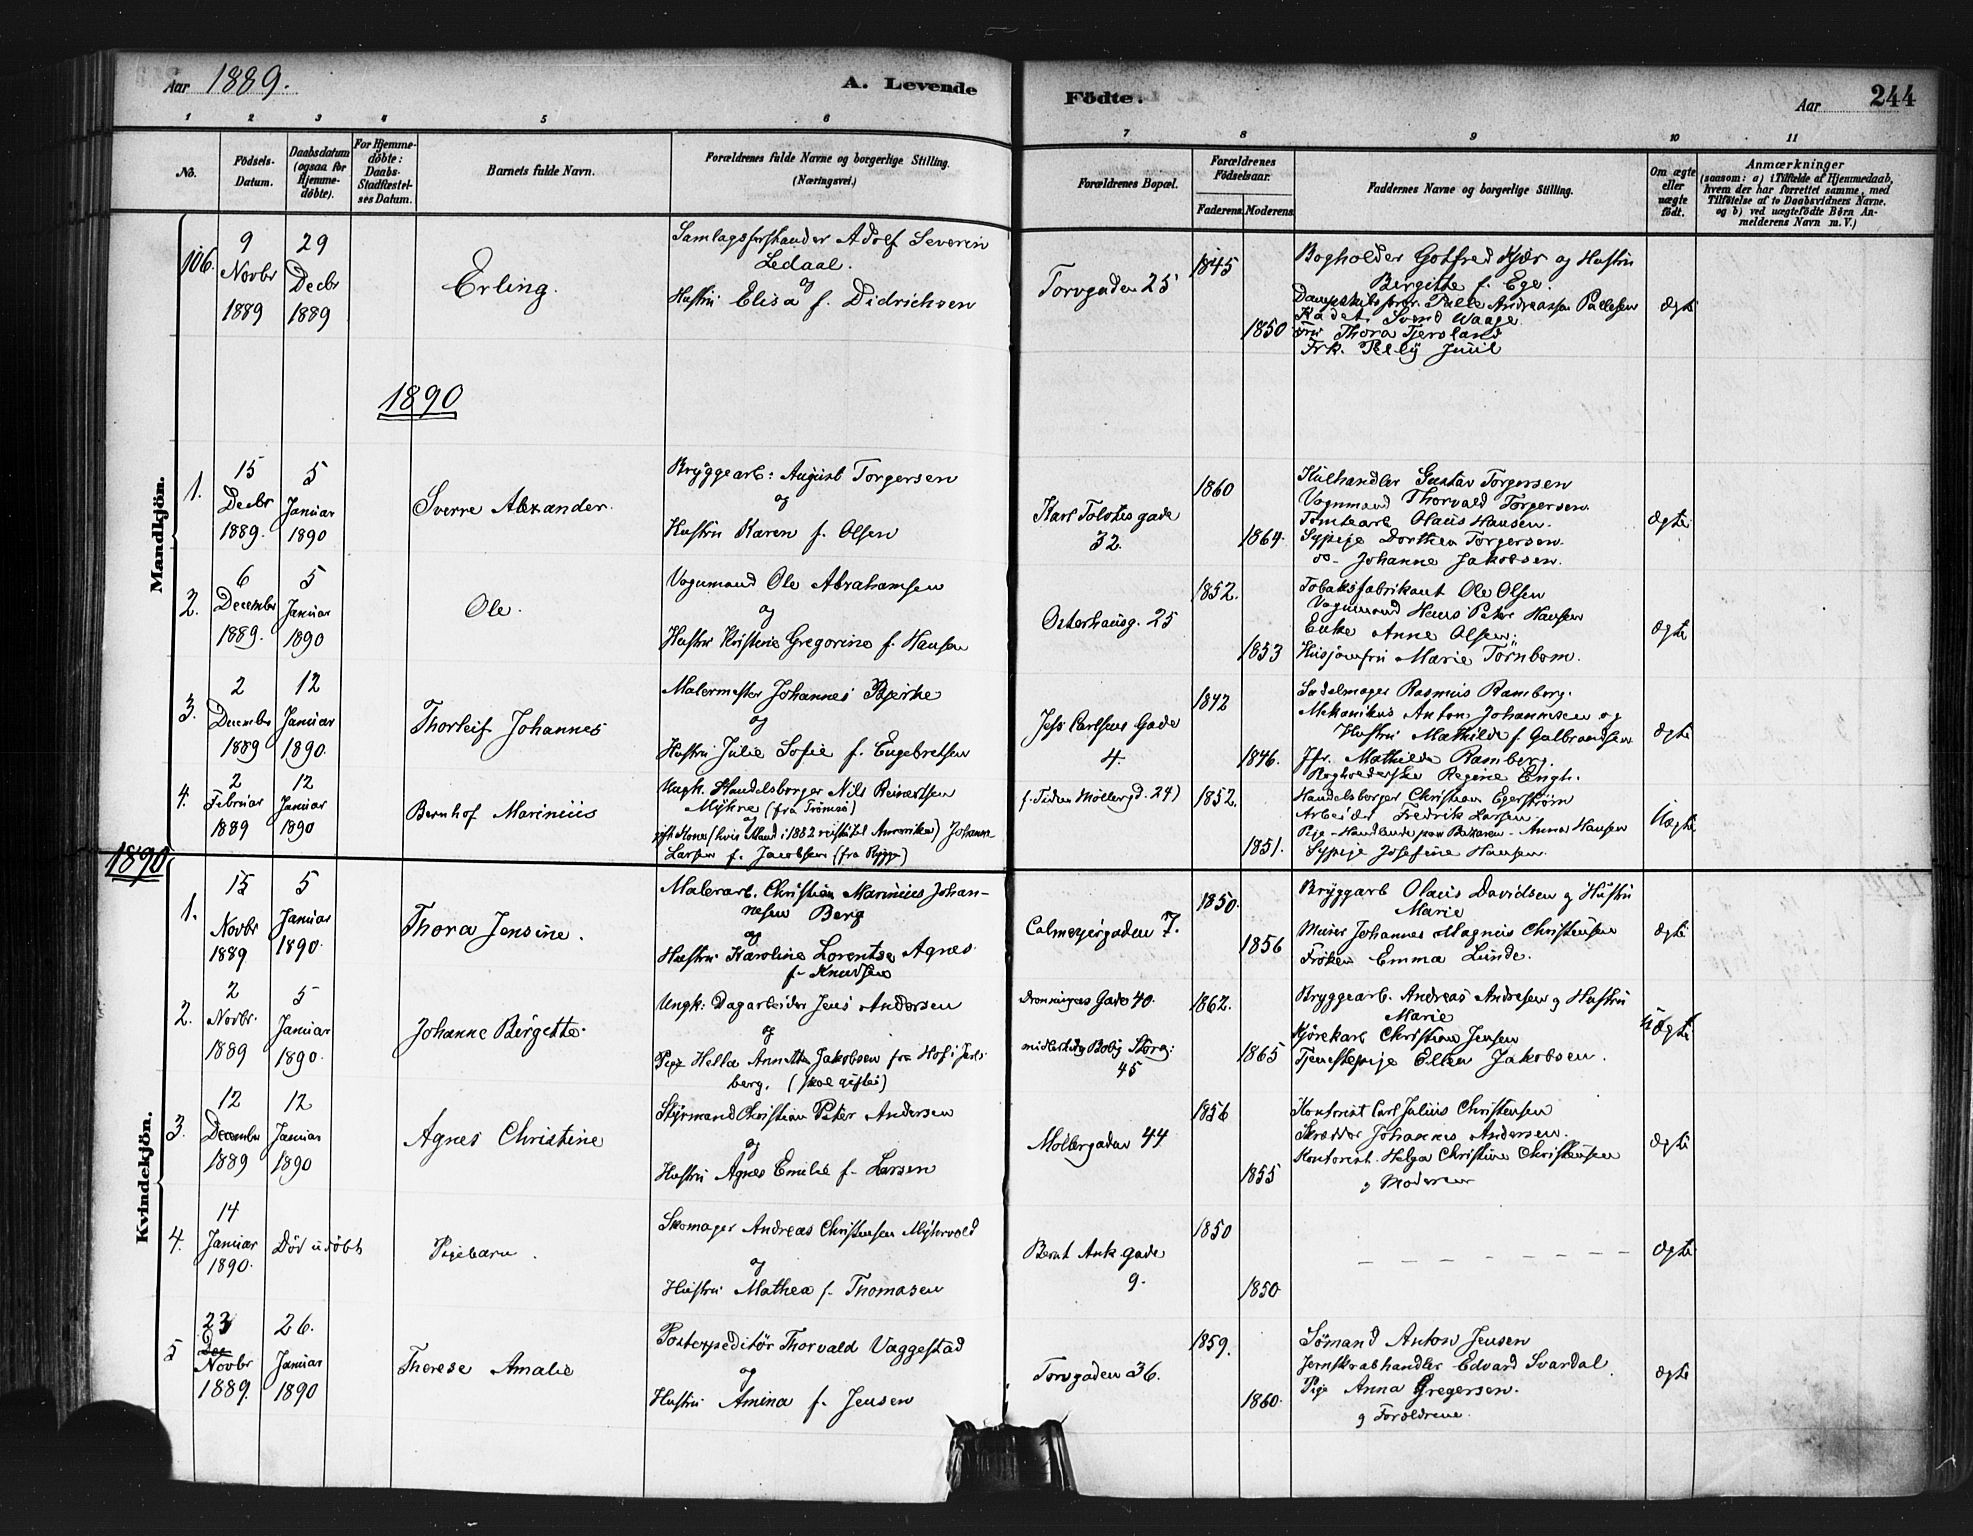 Aar 1889.
A. Levende
Födte.
Aar
244
1 2 3 4 5 6 7 8 9 10 11
No.
Födsels-
Datum.
Daabsdatum
(ogsaa for
Hjemme-
döbte).
For Hjemme-
döbte:
Daabs-
Stadfæstel-
ses Datum.
Barnets fulde Navn.
Forældrenes fulde Navne og borgerlige Stilling.
(Næringsvei.)
Forældrenes Bopæl.
Forældrenes
Födselsaar.
Faderens. Moderens.
Faddernes Navne og borgerlige Stilling.
Om ægte
eller
uægte
födt.
Anmærkninger
(saasom: a) i Tilfælde af Hjemmedaab,
hvem der har forrettet samme, med
Tilföielse af to Daabsvidners Navne,
og b) ved uægtefödte Börn An-
melderens Navn m. V.)
Mandkjön.
106.
9
Novbr
1889
29
Decbr
1889
Erling.
Samlagsforstander Adolf Severin
Ledaal.
og
Hustru Elisa f. Didrichsen
Torvgaden 25
1845
1850
Bogholder Gotfred Kjær og Hustru
Bergitte f. Ege.
Palle Andreassen Pallesen
Kadet Svend Waage
Fru Thora Tjersland
Frk. Juul
Ægte
1890
1.
15
Decbr
1889.
5
Januar
1890
Sverre Alexander.
Bryggearb: August Torgersen
og
Hustru Karen f. Olsen
Karl Tolotis gade
32.
1860
1864.
Kulhandler Gustav Torgersen
Vognmand Thorvald Torgersen.
Tomtearb Olaus Hansen.
Sypige Dorthea Torgersen
do- Johanne Jakobsen.
Ægte
2.
6
December
1889.
5
Januar
1890
Ole.
Vognmand Ole Abrahamsen
og
Hustru Kristine Gregorine f. Hansen
Osterhausg. 25
1852.
1853
Tobaksfabrikant Ole Olsen
Vognmand Hans Peter Hansen
Enke Anne Olsen.
Husjomfru Marie Törnbom.
Ægte
3.
2
December
1889
12
Januar
1890.
Thorleif Johannes
Malermester Johannes Bjerke
og
Hustru Julie Sofie f. Engebretsen
Jess Carlsens Gade
4.
1842
1846.
Sadelmager Rasmus Ramberg.
Mekanikus Anton Johannesen og
Hustru Mathilde f. Gulbrandsen
Jfr. Mathilde Ramberg.
Bogholderske Regine Engh.
Ægte
4.
2
Februar
1889
12
Januar
1890
Bernhof Marinius
Ungk. Handelsborger Nils Reinertsen
Myhre (fra Tromsø)
og
gift Kone (hvis Mand i 1882 reiste til Amerika) Johanne
Larsen f. Jacobsen (fra Rygge)
(f. Tiden Möllergd. 24)
1852.
1851.
Handelsborger Christian Egerström
Arbeider Fredrik Larsen.
Pige-Handlende paa Bazaren - Anna Hansen
Sypige Josefine Hansen.
Uægte
1890
Kvindekjön.
1.
15
Novbr
1889
5
Januar
1890.
Thora Jensine.
Malerarb. Christian Marinius Johan-
nesen Berg
og
Hustru Karoline Lorentse Agnes
f. Knudsen
Calmeyergaden 7.
1850.
1856
Bryggarb Olaus Davidsen og Hustru
Marie
Murer Johannes Magnus Christensen
Frøken Emma Lunde.
Ægte
2.
2
Novbr.
1889
5
Januar
1890.
Johanne Bergette.
Ungk: Dagarbeider Jens Andersen
og
Pige Hella Annette Jakobsen fra Hof i Jarls-
berg. (skal giftes)
Dronningens Gade 40.
midlertidig Bolig Storg:
45
1862.
1865
Bryggearb. Andreas Andresen og Hustru
Marie
Kjörekarl Christian Jensen
Tjenestepige Ellen Jakobsen.
UÆgte
3.
12
December
1889
12
Januar
1890
Agnes Christine
Styrmand Christian Peter Andersen
og
Hustru Agnes Emilie f. Larsen
Möllergaden 44
1856
1855
Kontorist Carl Julius Christensen
Skrædder Johannes Andersen.
Kontorist. Helga Christine Christensen
og Moderen
Ægte
4.
14
Januar
1890.
Död udöbt
Pigebarn.
Skomager Andreas Christensen Myhrvold
og
Hustru Mathea f. Thomasen
Bernt Ank gade
9.
1850
1850
Ægte
5
23
Dec
Novbr
1889.
26.
Januar
1890
Therese Amalie
Postexpeditör Thorvald Vaggestad
og
Hustru Amina f. Jensen
Torvgaden 36.
1859.
1860.
Sömand Anton Jensen
Jernskrabhandler Edvard Svardal
Pige Anna Gregersen.
og Forældrene.
Ægte